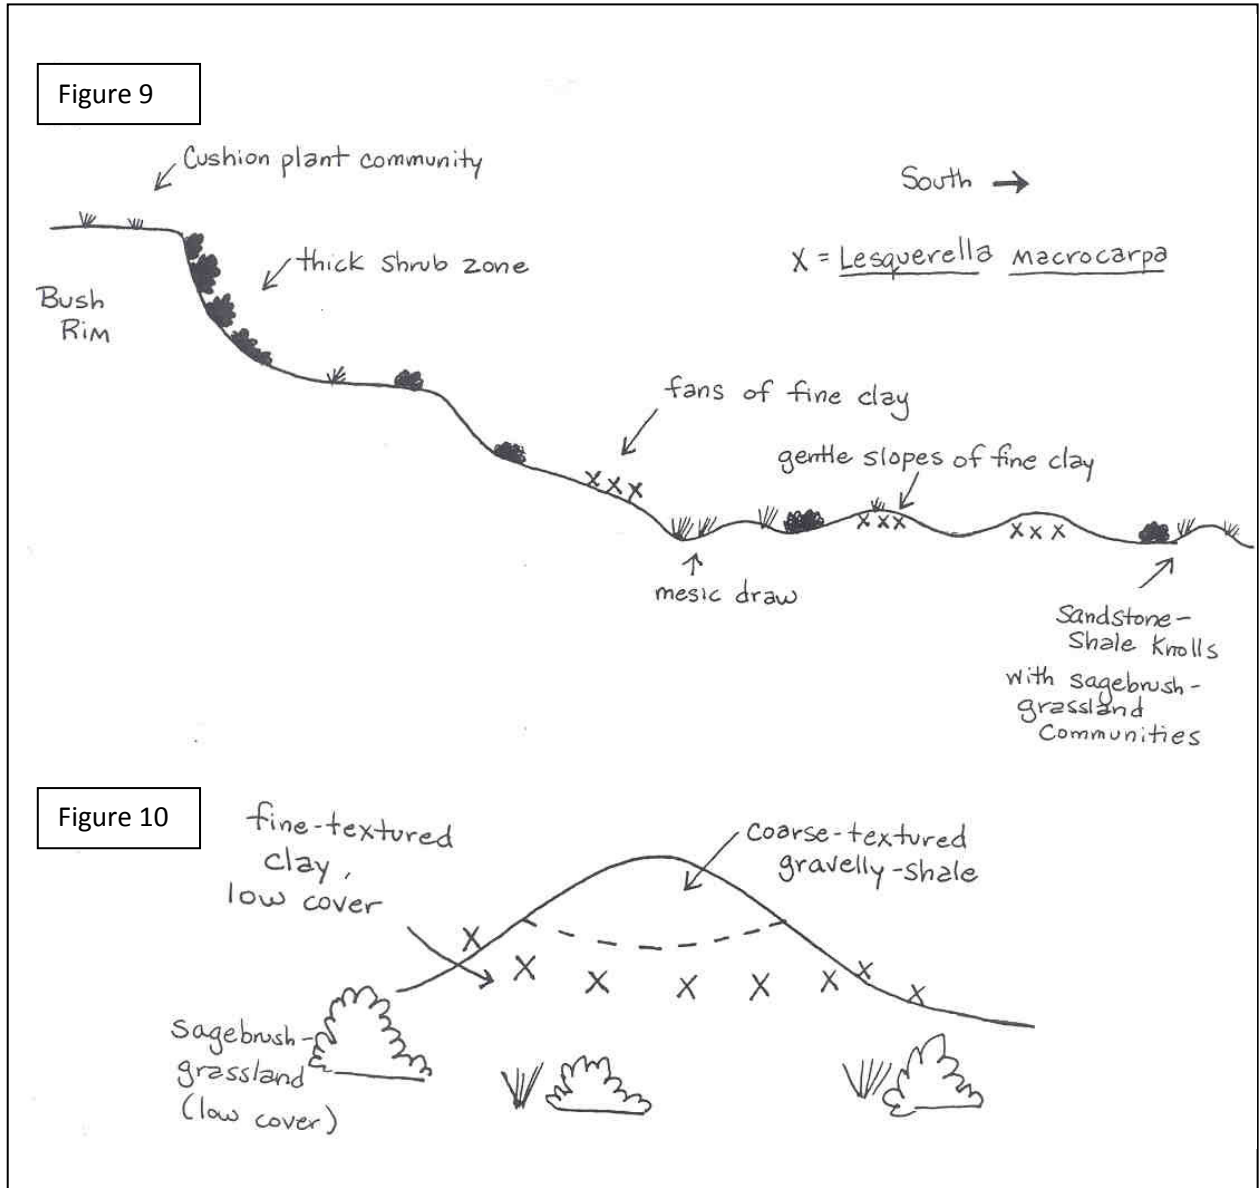 Figure 9
Cushion plant community
South →
thick shrub zone
X = Lesquerella macrocarpa
Bush
Rim
fans of fine clay
gentle slopes of fine clay
X X X
X X X
X X X
mesic draw
Sandstone-
Shale Knolls
with sagebrush-
grassland
Communities
Figure 10
fine-textured
clay,
low cover
coarse-textured
gravelly-shale
X
X X X X X X X
Sagebrush-
grassland
(low cover)